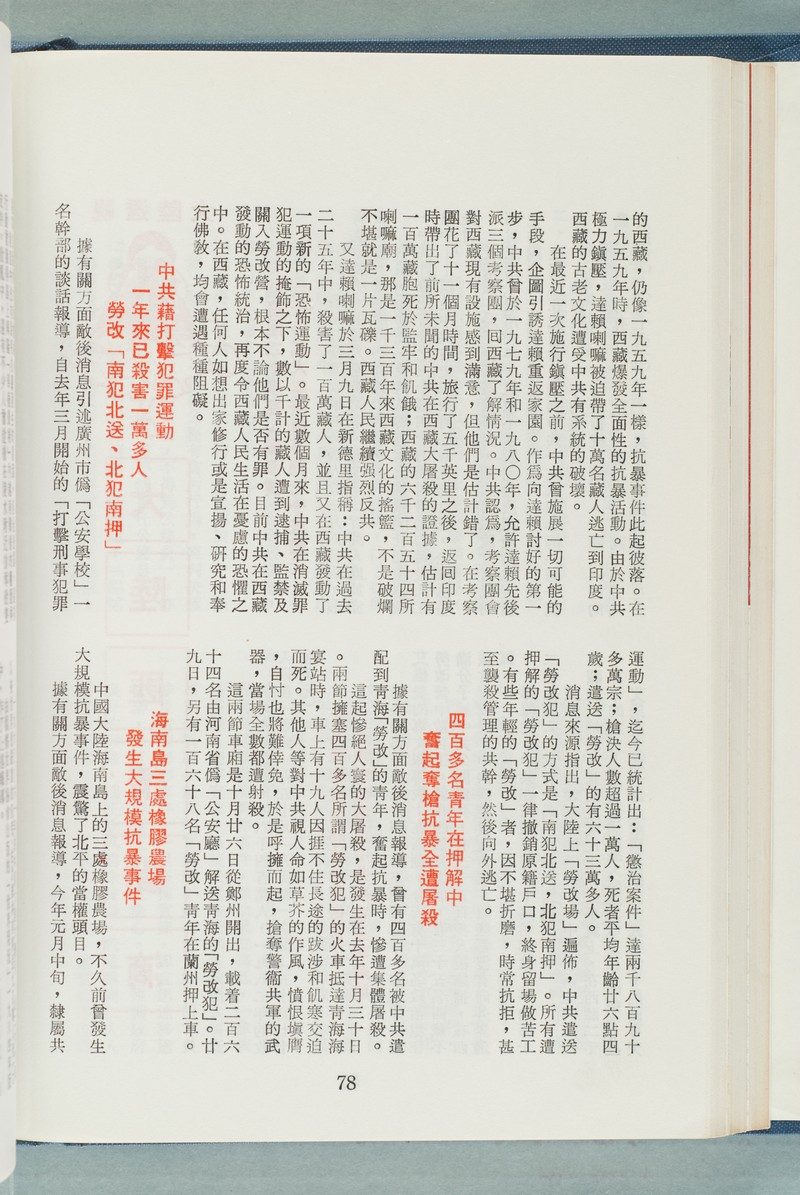 的西藏，仍像一九五九年一樣，抗暴事件此起彼落。在
一九五九年時，西藏爆發全面性的抗暴活動。由於中共
極力鎮壓，達賴喇嘛被迫帶了十萬名藏人逃亡到印度。
西藏的古老文化遭受中共有系統的破壞。
在最近一次施行鎮壓之前，中共曾施展一切可能的
手段，企圖引誘達賴重返家園。作為向達賴討好的第一
步，中共曾於一九七九年和一九八〇年，允許達賴先後
派三個考察團，囘西藏了解情況。中共認為，考察團會
對西藏現有設施感到滿意，但他們是估計錯了。在考察
團花了十一個月時間，旅行了五千英里之後，返囘印度
時帶出了前所未聞的中共在西藏大屠殺的證據，估計有
一百萬藏胞死於監牢和飢餓；西藏的六千二百五十四所
喇嘛廟，那是一千三百年來西藏文化的搖籃，不是破爛
不堪就是一片瓦礫。西藏人民繼續强烈反共。
又達賴喇嘛於三月九日在新德里指稱：中共在過去
二十五年中，殺害了一百萬藏人，並且又在西藏發動了
一項新的「恐怖運動」。最近數個月來，中共在消滅罪
犯運動的掩飾之下，數以千計的藏人遭到逮捕、監禁及
關入勞改營，根本不論他們是否有罪。目前中共在西藏
發動的恐怖統治，再度令西藏人民生活在憂慮的恐懼之
中。在西藏，任何人如想出家修行或是宣揚、研究和奉
行佛教，均會遭遇種種阻礙。
中共藉打擊犯罪運動
一年來已殺害一萬多人
勞改「南犯北送、北犯南押」
據有關方面敵後消息引述廣州市僞「公安學校」一
名幹部的談話報導，自去年三月開始的「打擊刑事犯罪
運動」，迄今已統計出：「懲治案件」達兩千八百九十
多萬宗；槍決人數超過一萬人，死者平均年齡廿六點四
歲；遣送「勞改」的有六十三萬多人。
消息來源指出，大陸上「勞改場」遍佈，中共遣送
「勞改犯」的方式是「南犯北送，北犯南押」。所有遭
押解的「勞改犯」一律撤銷原籍戶口，終身留場做苦工
。有些年輕的「勞改」者，因不堪折磨，時常抗拒，甚
至襲殺管理的共幹，然後向外逃亡。
四百多名青年在押解中
奮起奪槍抗暴全遭屠殺
據有關方面敵後消息報導，曾有四百多名被中共遣
配到青海「勞改」的青年，奮起抗暴時，慘遭集體屠殺。
這起慘絕人寰的大屠殺，是發生在去年十月三十日
。兩節擁塞四百多名所謂「勞改犯」的火車抵達青海海
宴站時，車上有十九人因捱不住長途的跋涉和飢寒交迫
而死。其他人等對中共視人命如草芥的作風，憤恨塡膺
，自忖也將難倖免，於是呼擁而起，搶奪警衞共軍的武
器，當場全數都遭射殺。
這兩節車廂是十月廿六日從鄭州開出，載着二百六
十四名由河南省僞「公安廳」解送青海的「勞改犯」。廿
九日，另有一百六十八名「勞改」青年在蘭州押上車。
海南島三處橡膠農場
發生大規模抗暴事件
中國大陸海南島上的三處橡膠農場，不久前曾發生
大規模抗暴事件，震驚了北平的當權頭目。
據有關方面敵後消息報導，今年元月中旬，隸屬共
78